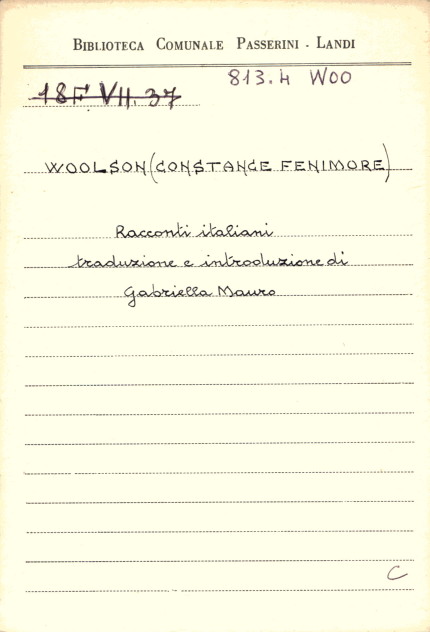 BIBLIOTECA COMUNALE PASSERINI - LANDI
813.4 WOO
18F VII. 37
WOOLSON (CONSTANCE FENIMORE)
Racconti italiani
traduzione e introduzione di
Gabriella Mauro
C